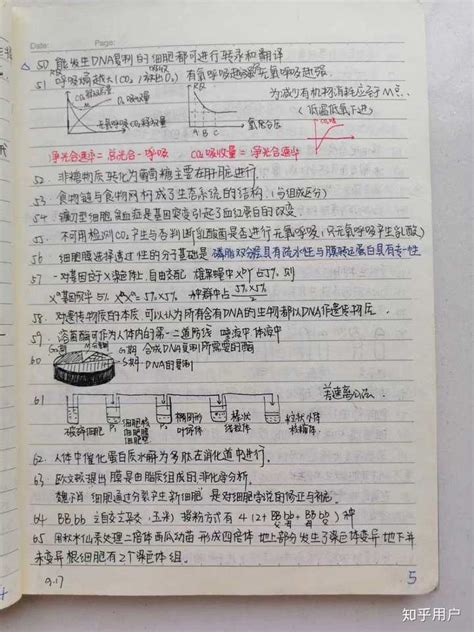 Date: Page:
50 能发生DNA复制的细胞都可进行转录和翻译
51 呼吸熵越大(CO₂/O₂) 有氧呼吸越弱 无氧呼吸越强
CO₂释放量
O₂吸收量
无氧呼吸CO₂释放量
A B C
氧分压
为减少有机物消耗应于M点
(低温低氧下进)
净光合速率=总光合-呼吸 CO₂吸收量=净光合速率
52. 非糖物质转化为葡萄糖主要在肝脏进行.
53. 食物链与食物网构成了生态系统的结构.(与组成区分)
54. 镰刀型细胞贫血症是基因突变引起了血红蛋白的改变
55. 不可用检测CO₂产生与否判断乳酸菌是否进行无氧呼吸(只无氧呼吸产生乳酸)
56 细胞膜选择透过性的分子基础是 磷脂双分层具有疏水性与膜转运蛋白具有专一性
57 一对基因位于X染色体上.自由交配
58. 对遗传物质的本质.可以认为所有含有DNA的生物都以DNA作遗传物质.
59. 溶菌酶可作为人体内的第一二道防线 唾液中 体液中
60. G₁期 G₁期 合成DNA复制所需要的酶
S期 DNA的复制
61 差速离心法.
破碎细胞
椭圆形
叶绿体
棒状
线粒体
核糖体.
62. 人体中催化蛋白质水解为多肽在消化道中进行.
63. 欧文顿提出膜是由脂质组成的.非化学分析
魏尔肖 "细胞通过分裂产生新细胞" 是对细胞学说的修正与补充.
64 BB, bb 立自交立杂交,(玉米) 授粉方式有 4 (2+ BB bb + BB bb) 种
65. 用秋水仙素处理二倍体西瓜幼苗 形成四倍体 地上部分发生了染色体变异 地下并
未变异 根细胞有2个染色体组.
9.17
5
知乎用户